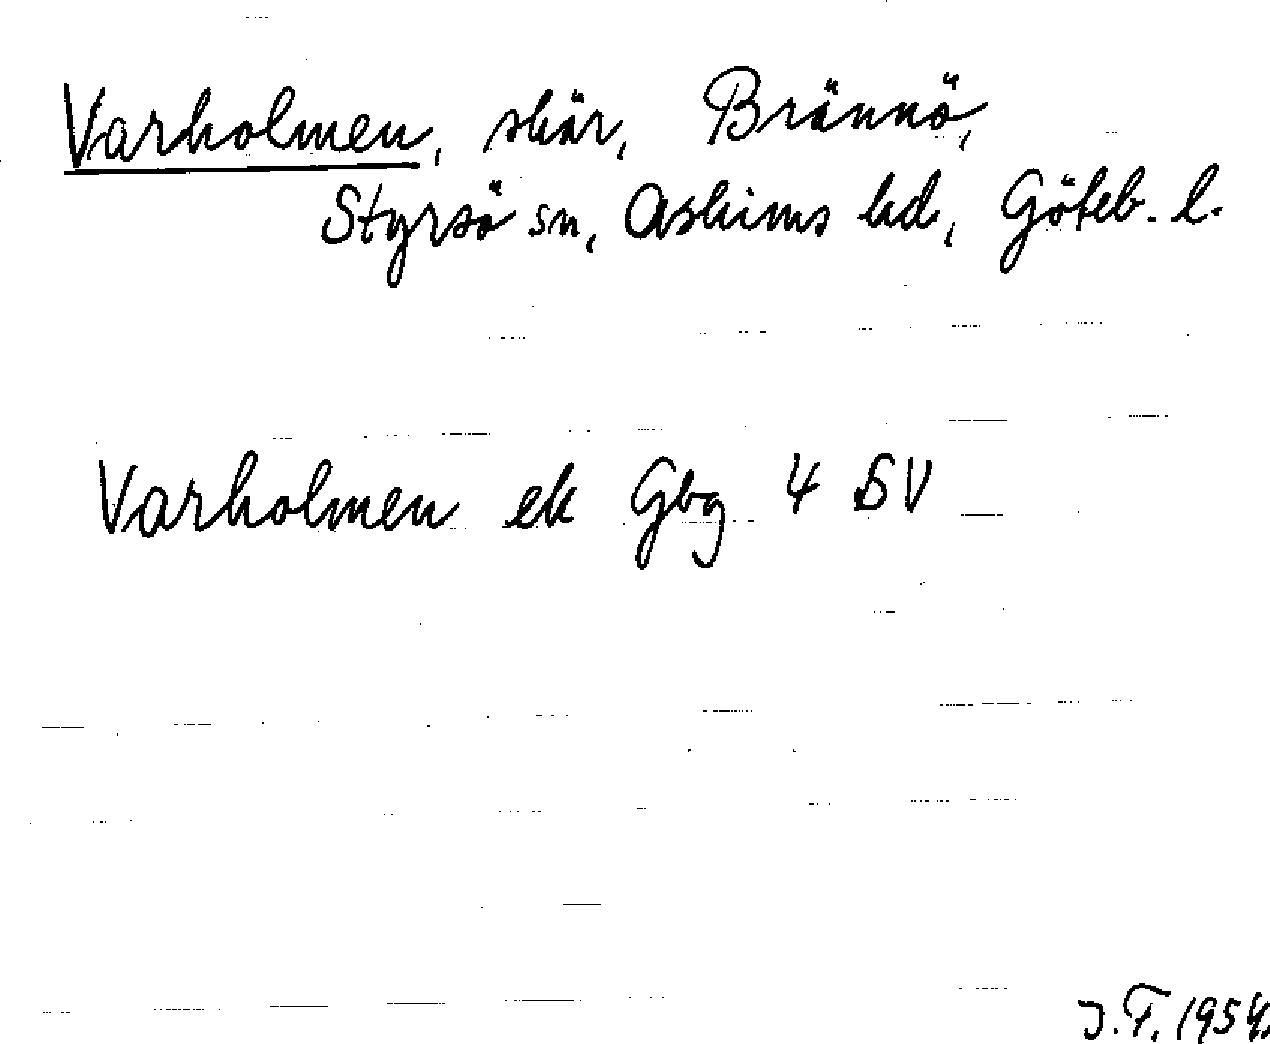 Varholmen, skär, Brännö,
Styrsö sn, Askims hd, Göteb. l.
Varholmen ek Gbg 4 SV
J.F. 1954.